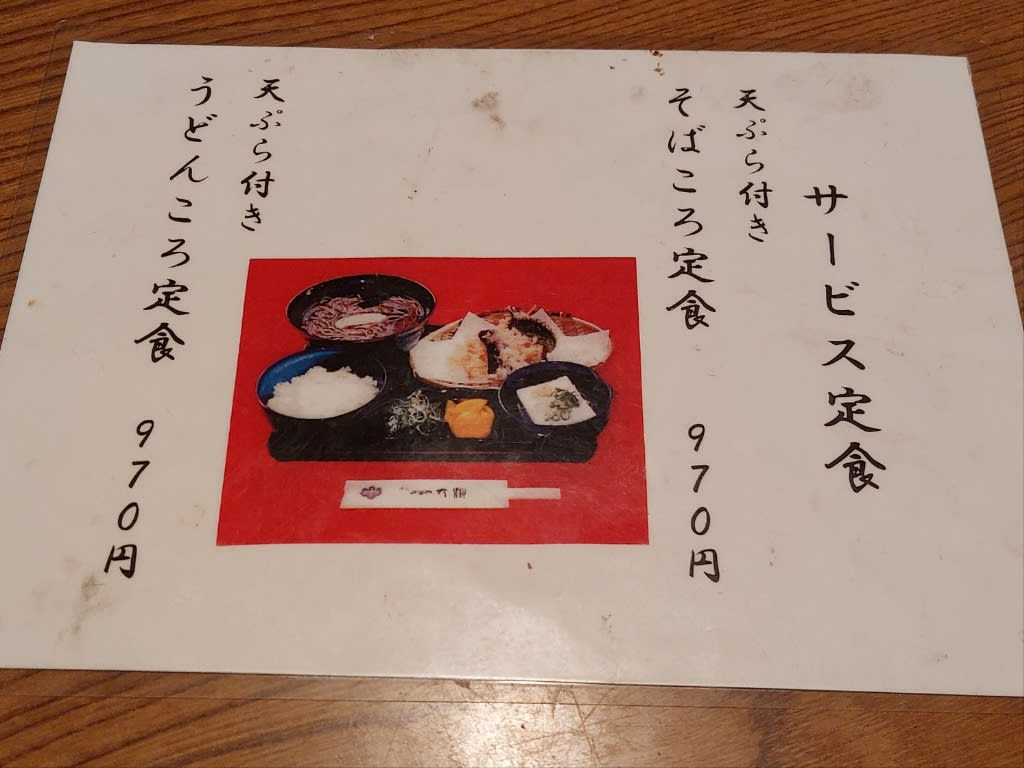 サービス定食
天ぷら付き
そばころ定食 970円
天ぷら付き
うどんころ定食 970円